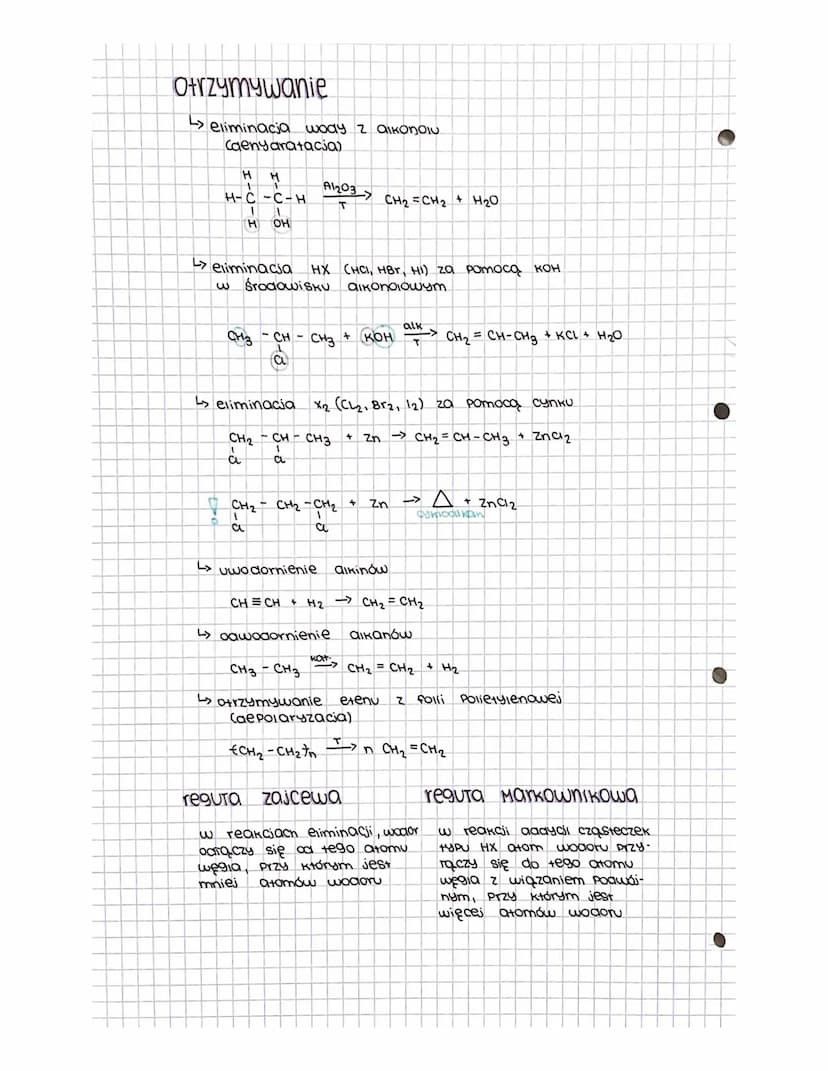 otrzymywanie
↳ eliminacja wody z alkoholu
(dehydratacja)
H H
H-C-C-H Al2O3 T → CH2=CH2 + H2O
H OH
↳ eliminacja HX (HCl, HBr, HI) za pomocą KOH
w środowisku alkoholowym
CH3 - CH - CH3 + KOH alk T → CH2 = CH-CH3 + KCl + H2O
Cl
↳ eliminacja X2 (Cl2, Br2, I2) za pomocą cynku
CH2 - CH - CH3 + Zn → CH2=CH-CH3 + ZnCl2
Cl Cl
! CH2 - CH2 - CH2 + Zn → △ + ZnCl2
cykloalkan
Cl Cl
↳ uwodornienie alkinów
CH≡CH + H2 → CH2=CH2
↳ odwodornienie alkanów
CH3 - CH3 kat. → CH2 = CH2 + H2
↳ otrzymywanie etenu z folii polietylenowej
(depolaryzacja)
{CH2-CH2}n T → n CH2=CH2
reguła zajcewa
w reakcjach eliminacji, wodór
odłączy się od tego atomu
węgla, przy którym jest
mniej atomów wodoru
reguła Markownikowa
w reakcji addycji cząsteczek
typu HX atom wodoru przy-
łączy się do tego atomu
węgla z wiązaniem podwój-
nym, przy którym jest
więcej atomów wodoru